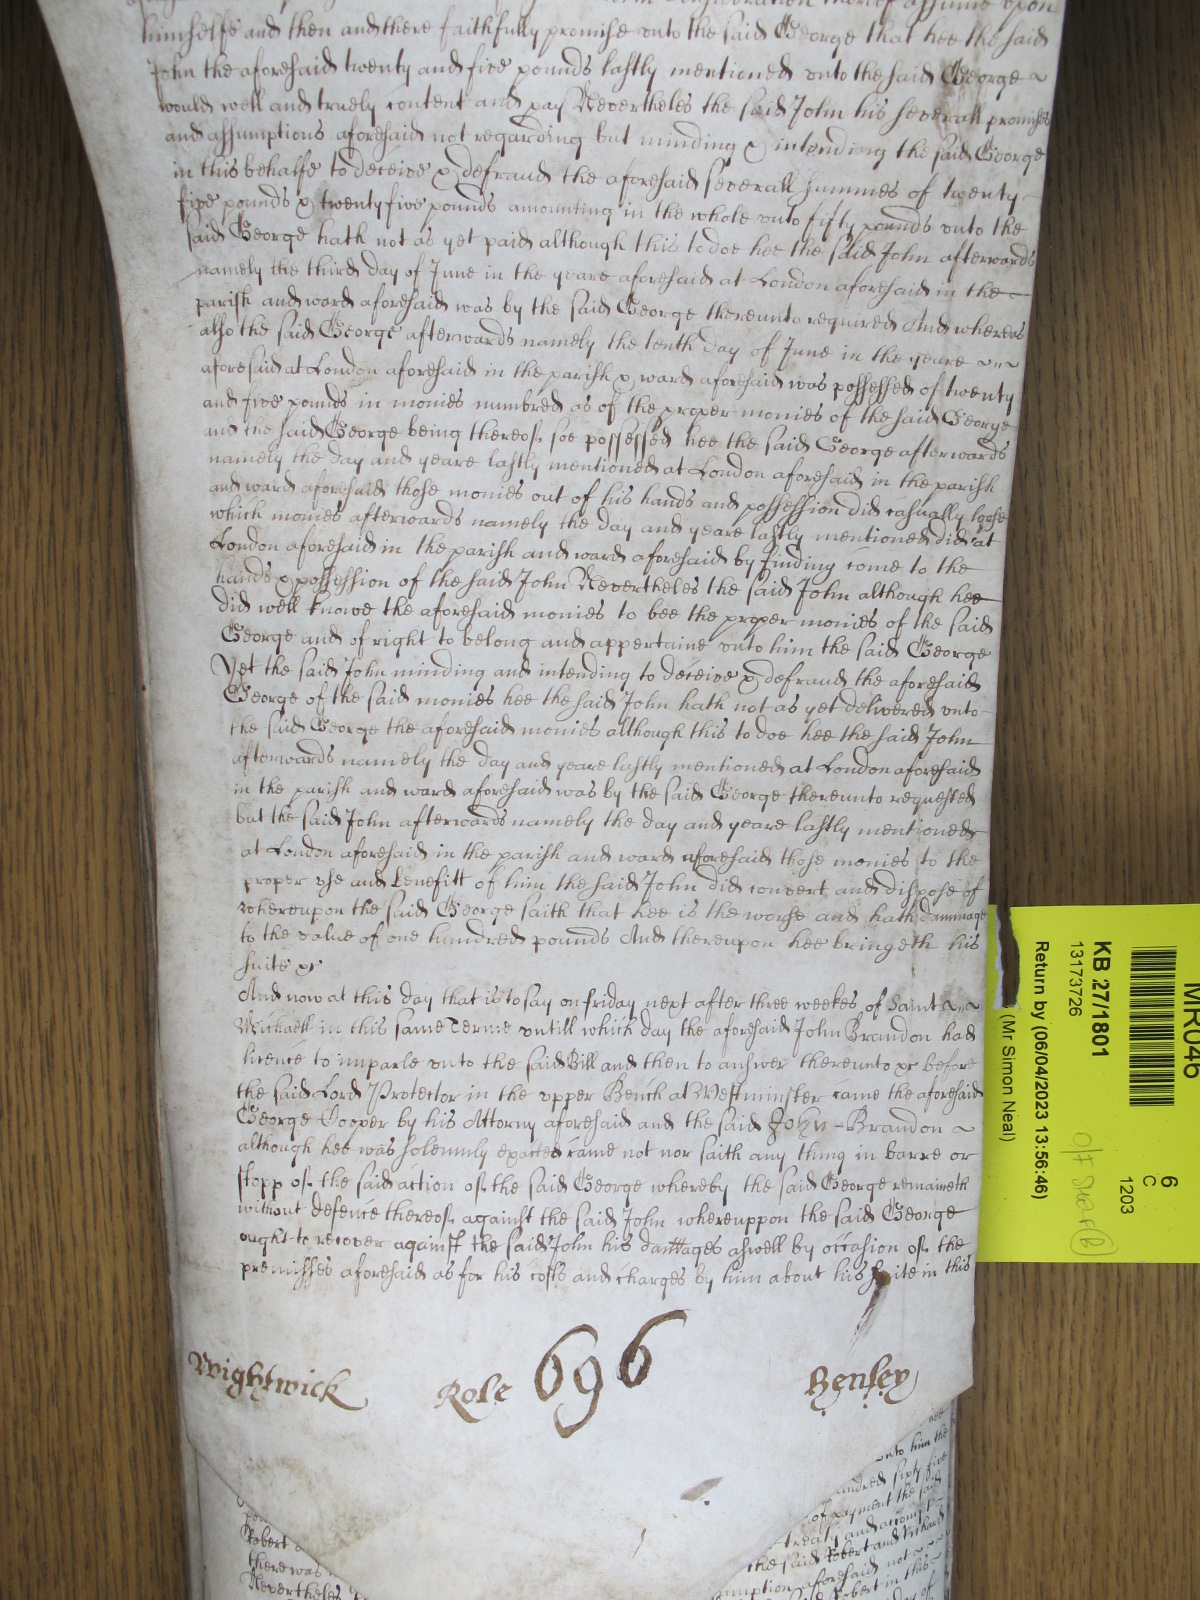 consideration thereof assume upon
himselfe and then and there faithfully promise unto the said George that hee the said
John the aforesaid twenty and five pounds lastly mentioned unto the said George
would well and truely content and pay Nevertheles the said John his severall promises
and assumptions aforesaid not regarding but minding & intending the said George
in this behalfe to deceive & defraud the aforesaid severall summes of twenty
five pounds & twenty five pounds amounting in the whole unto fifty pounds unto the
said George hath not as yet paid although this to doe hee the said John afterwards
namely the third day of June in the yeare aforesaid at London aforesaid in the
parish and ward aforesaid was by the said George thereunto required And whereas
also the said George afterwards namely the tenth day of June in the yeare
aforesaid at London aforesaid in the parish & ward aforesaid was possessed of twenty
and five pounds in monies numbred as of the proper monies of the said George
and the said George being thereof soe possessed hee the said George afterwards
namely the day and yeare lastly mentioned at London aforesaid in the parish
and ward aforesaid those monies out of his hands and possession did casually loose
which monies afterwards namely the day and yeare lastly mentioned did at
London aforesaid in the parish and ward aforesaid by finding come to the
hands & possession of the said John Nevertheles the said John although hee
did well knowe the aforesaid monies to bee the proper monies of the said
George and of right to belong and appertaine unto him the said George
Yet the said John minding and intending to deceive & defraud the aforesaid
George of the said monies hee the said John hath not as yet delivered unto
the said George the aforesaid monies although this to doe hee the said John
afterwards namely the day and yeare lastly mentioned at London aforesaid
in the parish and ward aforesaid was by the said George thereunto requested
but the said John afterwards namely the day and yeare lastly mentioned
at London aforesaid in the parish and ward aforesaid those monies to the
proper use and benefitt of him the said John did convert and dispose of
whereupon the said George saith that hee is the worse and hath dammage
to the value of one hundred pounds And thereupon hee bringeth his
suite &c
And now at this day that is to say on friday next after three weekes of Saint
Michaell in this same Terme untill which day the aforesaid John Brandon had
licence to imparle unto the said Bill and then to answer thereunto &c before
the said Lord Protector in the upper Bench at Westminster came the aforesaid
George Cooper by his Attorny aforesaid and the said John Brandon
although hee was solemnly exacted came not nor saith any thing in barre or
stopp of the said action of the said George whereby the said George remaineth
without defence thereof against the said John whereuppon the said George
ought to recover against the said John his damages aswell by occasion of the
premisses aforesaid as for his costs and charges by him about his suite in this
Wightwick Role 696 Benley
unto him the
hundred sixty five
of payment the said
treaty and
the said Robert and Richard
aforesaid not
Robert in this
day of
Robert
there was
Nevertheles
MR046
6
C
1203
KB 27/1801
13173726
Return by (06/04/2023 13:56:46)
(Mr Simon Neal)